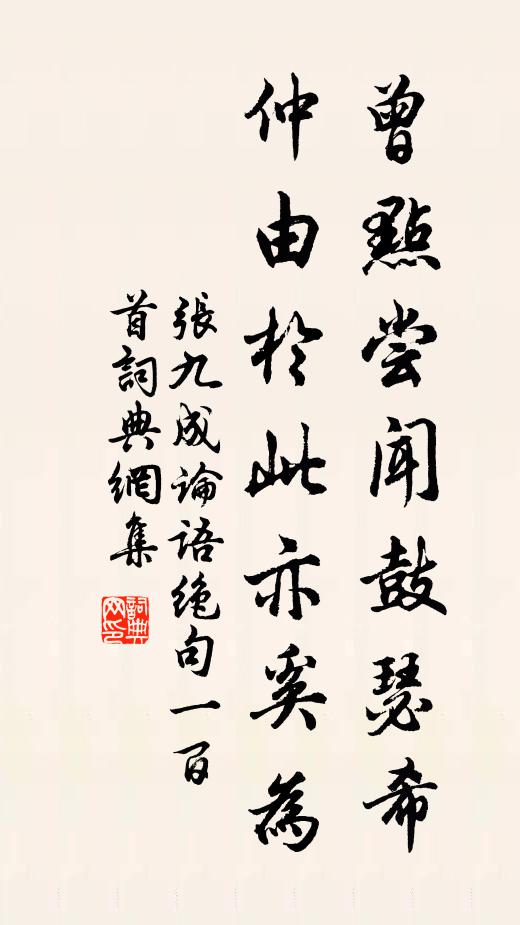 曾點尝闻鼓瑟希
仲由於此亦奚為
張九成论语绝句一百
首詞典網集
詞典网印